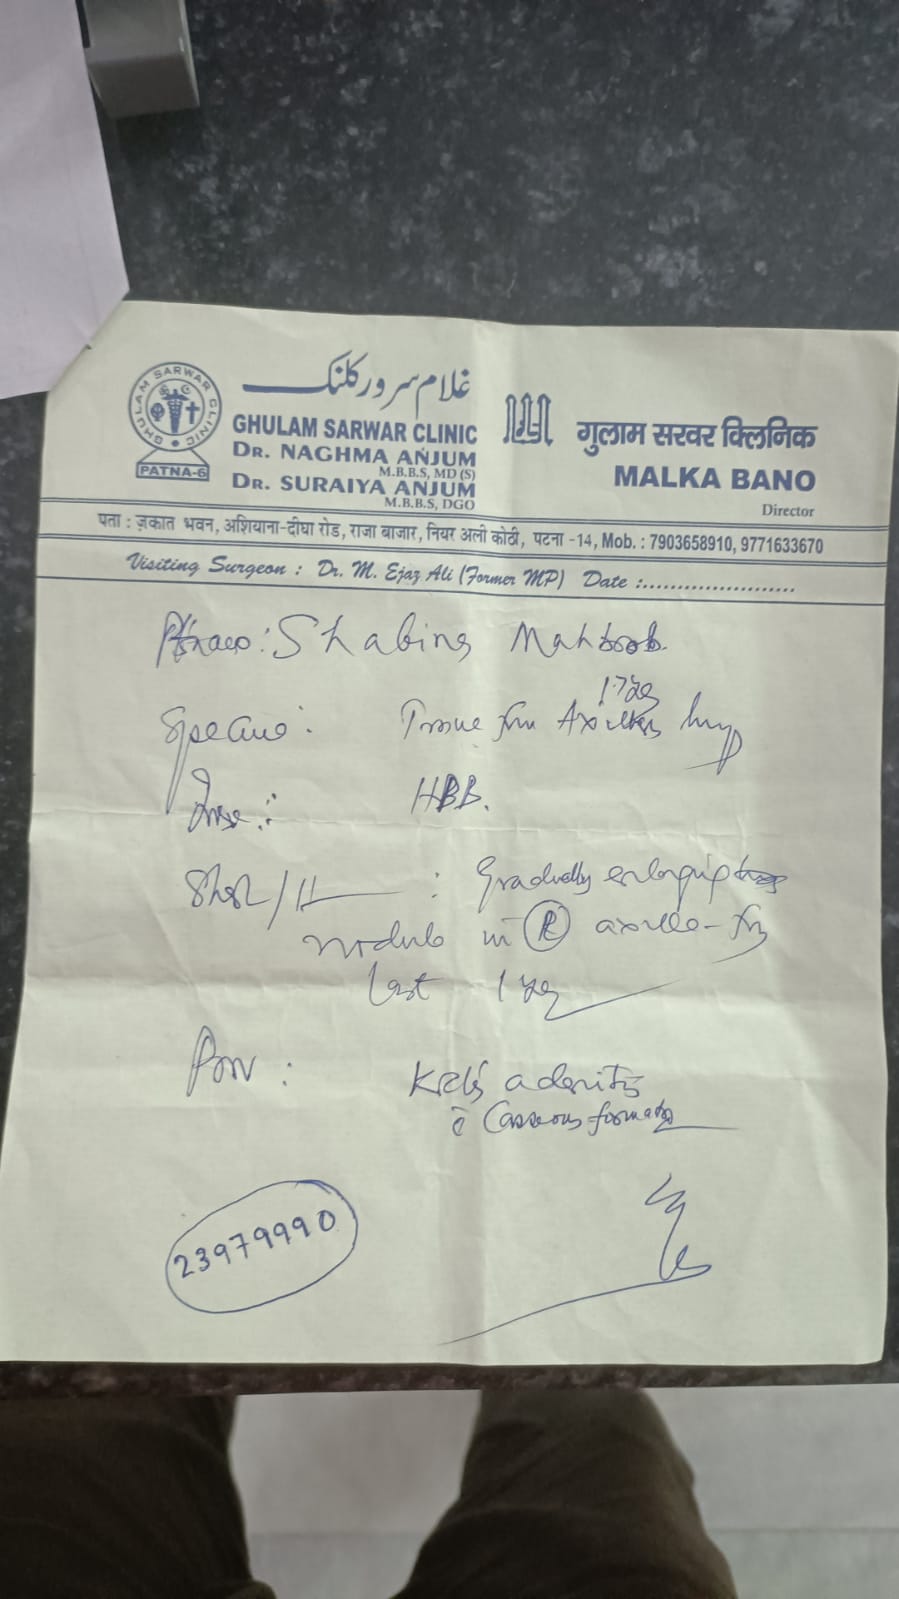 غلام سرور کلنک
GHULAM SARWAR CLINIC
PATNA-6
GHULAM SARWAR CLINIC
DR. NAGHMA ANJUM
M.B.B.S, MD (S)
DR. SURAIYA ANJUM
M.B.B.S, DGO
गुलाम सरवर क्लिनिक
MALKA BANO
Director
पता : ज़कात भवन, अशियाना-दीघा रोड, राजा बाजार, नियर अली कोठी, पटना -14, Mob. : 7903658910, 9771633670
Visiting Surgeon : Dr. M. Ejaz Ali (Former MP) Date :......................
: Shabina Mahboob
17
:
:
Short/H : Gradually enlarging
nodule in R axilla - for
last 1
: adenitis
c̄ Caseous formation
23979990